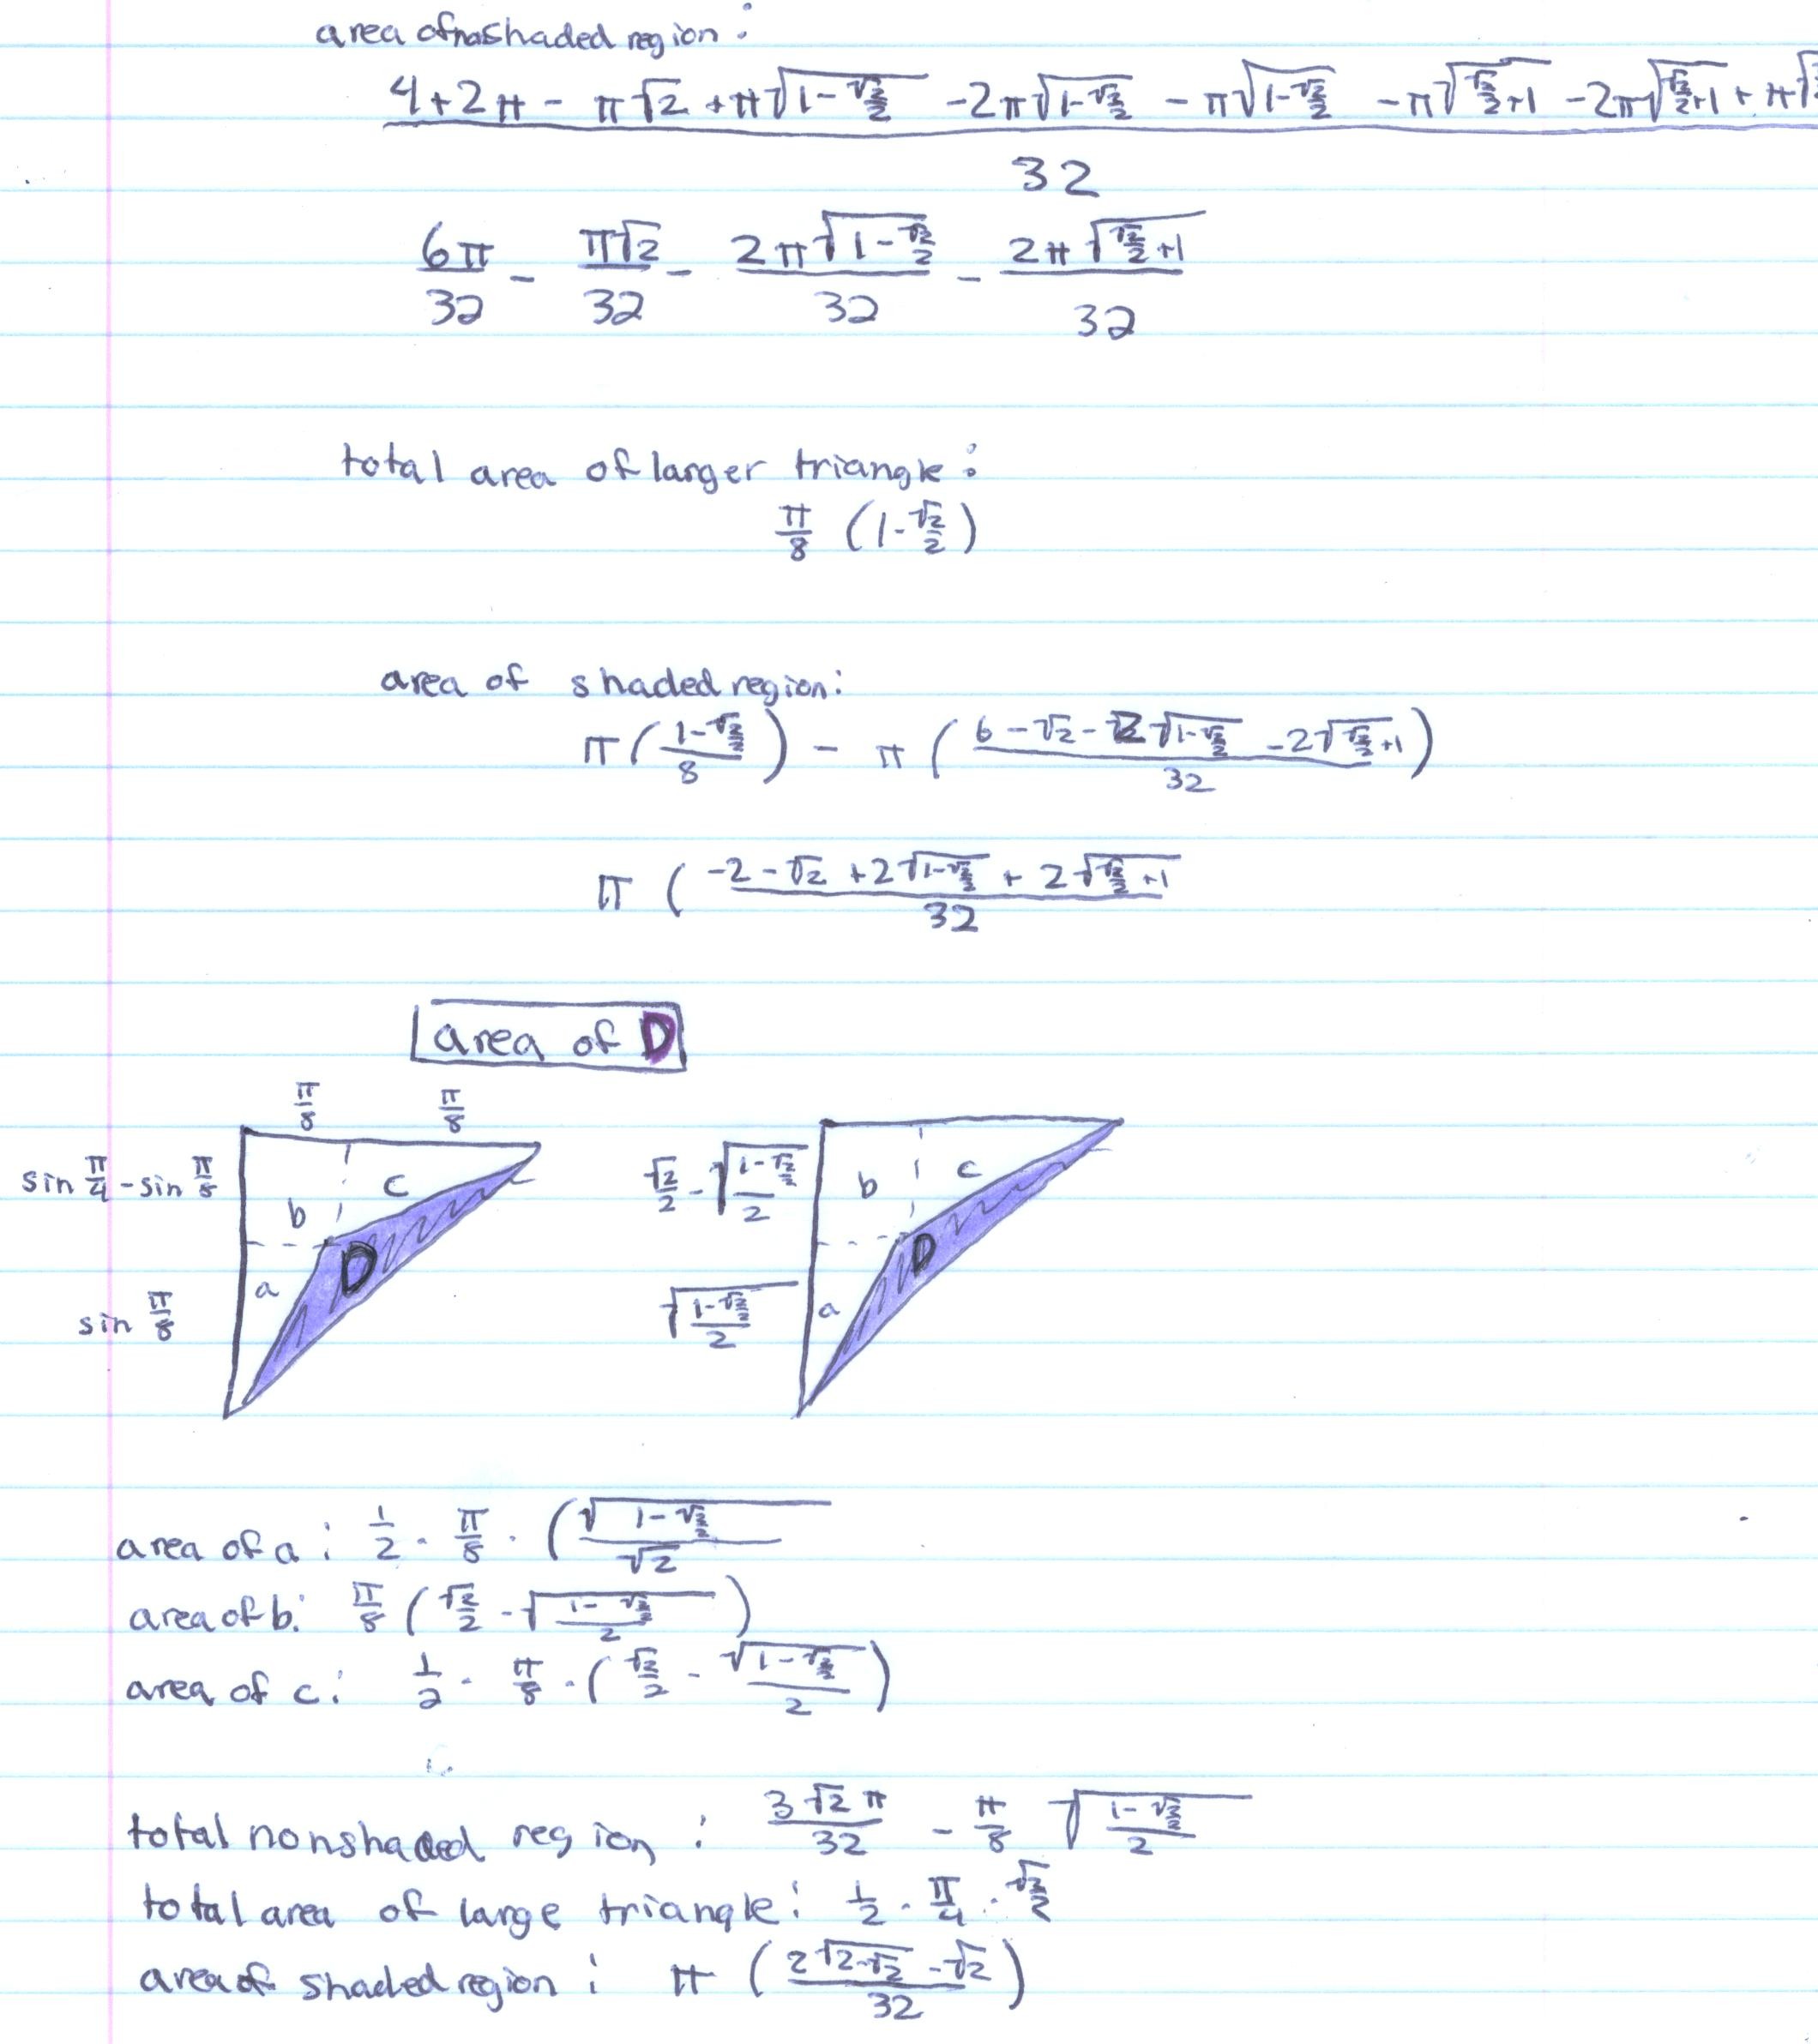 area of nonshaded region:
4+2π - π√2 + π√(1-√2/2) - 2π√(1-√2/2) - π√(1-√2/2) - π√(√2/2+1) - 2π√(√2/2+1) + π√
32
6π/32 - π√2/32 - 2π√(1-√2/2)/32 - 2π√(√2/2+1)/32
total area of larger triangle:
π/8 (1-√2/2)
area of shaded region:
π((1-√2/2)/8) - π((6-√2-2√(1-√2/2)-2√(√2/2+1))/32)
π((-2-√2+2√(1-√2/2)+2√(√2/2+1))/32
area of D
π/8 π/8
sin π/4 - sin π/8
c
b
D
a
sin π/8
√2/2 - √((1-√2/2)/2)
b
c
D
a
√((1-√2/2)/2)
area of a: 1/2 · π/8 · (√(1-√2/2)/√2
area of b: π/8 (√2/2 - √((1-√2/2)/2))
area of c: 1/2 · π/8 · (√2/2 - √(1-√2/2)/2)
total nonshaded region: 3√2π/32 - π/8 √((1-√2/2)/2)
total area of large triangle: 1/2 · π/4 · √2/2
area of shaded region: π((2√(2-√2) - √2)/32)